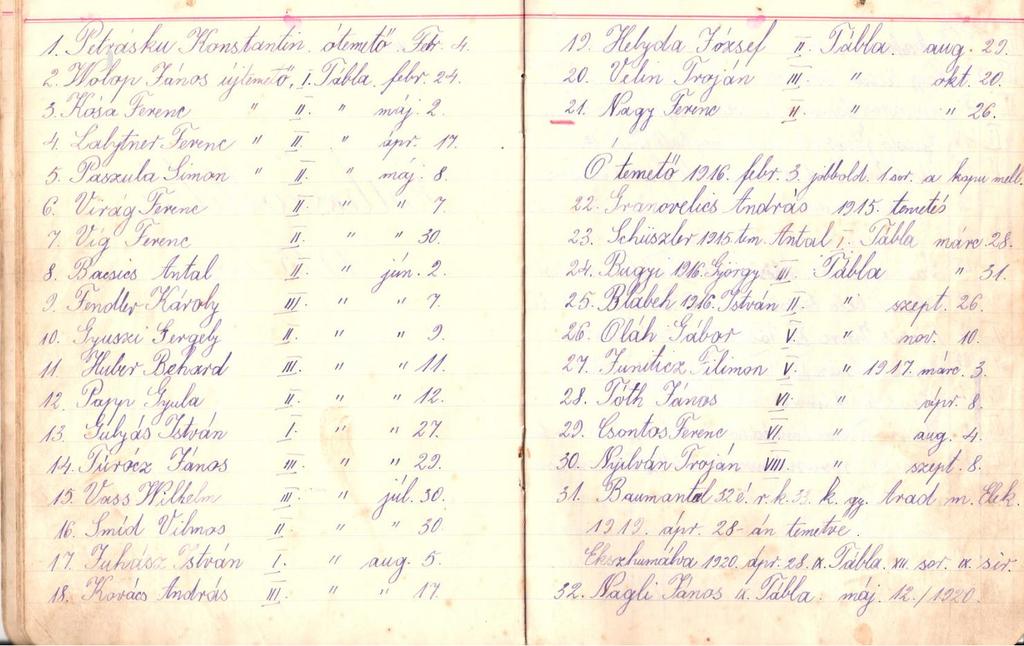 1. Petrásku Konstantin ótemető Febr. 4.
2. Wolop János újtemető, I. Tábla febr. 24.
3. Kósa Ferenc " II. " máj. 2.
4. Labytner Ferenc " II. " ápr. 17.
5. Paszula Simon " II. " máj. 8.
6. Virág Ferenc II. " " 7.
7. Víg Ferenc II. " " 30.
8. Bacsics Antal II. " jún. 2.
9. Fendler Károly III. " " 7.
10. Gyuszi Gergely II. " " 9.
11. Huber Behard III. " " 11.
12. Papp Gyula II. " " 12.
13. Gulyás István I. " " 27.
14. Túrócz János III. " " 29.
15. Vass Wilhelm III. " júl. 30.
16. Smid Vilmos II. " " 30
17. Juhász István I. " aug. 5.
18. Kovács András III. " " 17.
19. Helyda József II. Tábla aug. 29.
20. Velin Troján III. " okt. 20.
21. Nagy Ferenc II. " " 26.
Ó temető 1916. febr. 3. jobbold. 1 sor. a kapu mell.
22. Ivanovelics András 1915. temetés
23. Schüszler 1915 tem. Antal I. Tábla márc. 28.
24. Bugyi 1916. György III. Tábla " 31.
25. Blábeh 1916. István II. " szept. 26.
26. Oláh Gábor V. " nov. 10.
27. Juniticz Filimon V. " 1917. márc. 3.
28. Tóth János VI. " ápr. 8.
29. Csontos Ferenc VI. " aug. 4.
30. Nyilván Troján VIII. " szept. 8.
31. Baumantel 32 é. r. k. 33. k. gy. Arad m. Elek.
1919. ápr. 28-án temetve.
Ekszhumálva 1920. ápr. 28. IX. Tábla. XII. sor. IX. sír.
32. Nagli János IX. Tábla. máj. 12. / 1920.